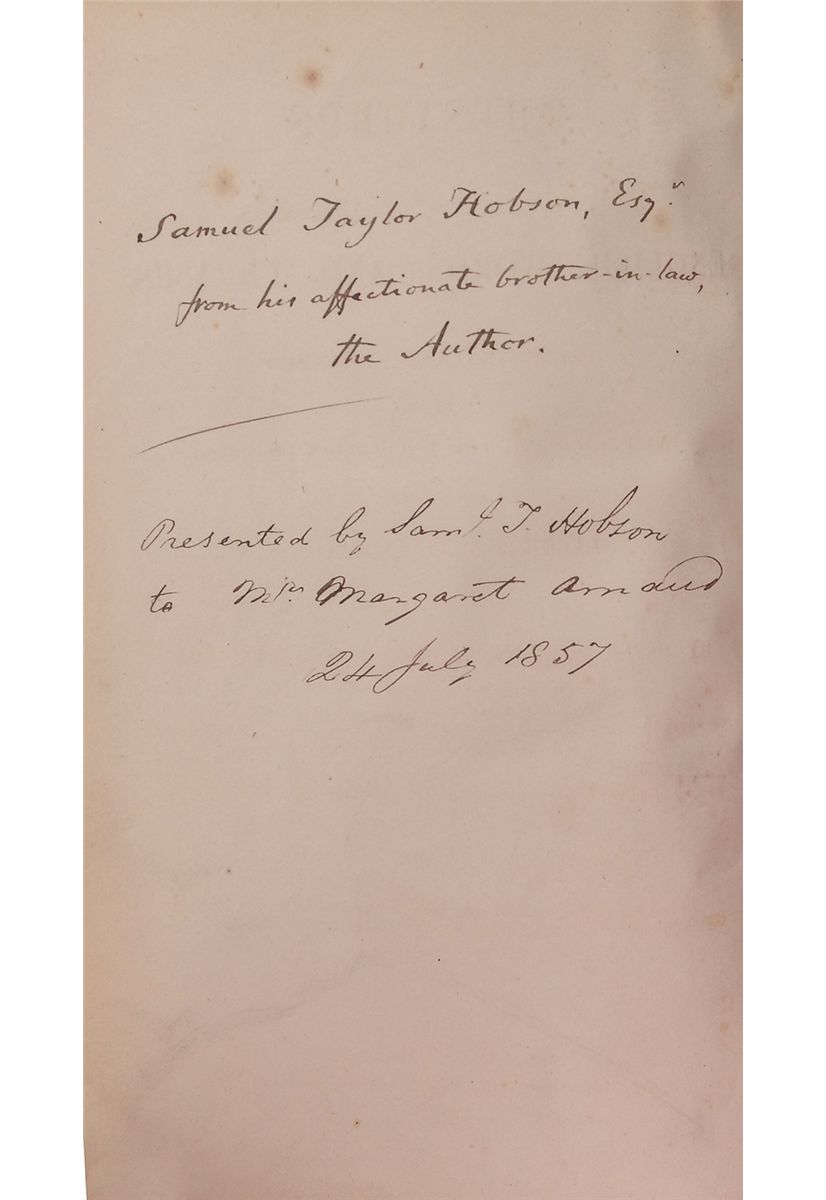 Samuel Taylor Hobson, Esqr.
from his affectionate brother-in-law,
the Author.
Presented by Saml. T. Hobson
to Mrs Margaret Arnaud
24 July 1857